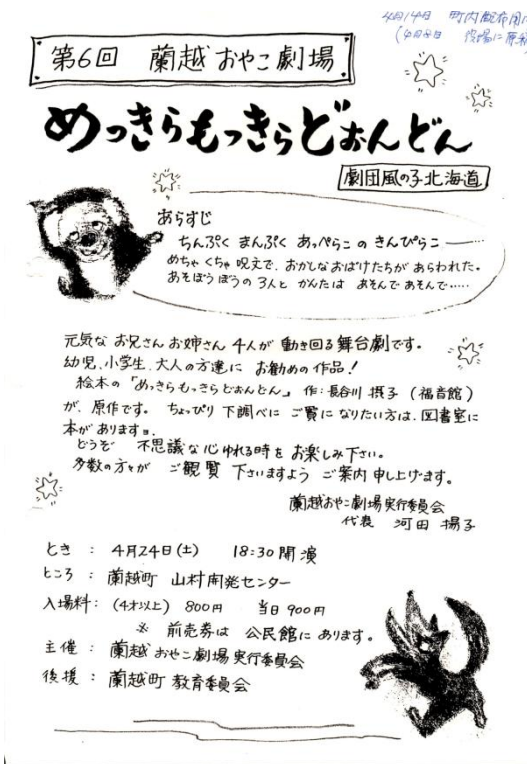 4月14日 町内配布用に
(4月8日 役場に原稿
第6回 蘭越おやこ劇場
めっきらもっきらどおんどん
劇団風の子北海道
あらすじ
ちんぷく まんぷく あっぺらこ の きんぴらこ ――……
めちゃくちゃ 呪文で、おかしなおばけたちが あらわれた。
あそぼうぼうの 3人と かんたは あそんで あそんで……
元気な お兄さん お姉さん 4人が 動き回る 舞台劇です。
幼児、小学生、大人の方達に お勧めの作品!
絵本の「めっきらもっきらどおんどん」 作:長谷川 摂子 (福音館)
が、原作です。 ちょっぴり 下調べに ご覧に なりたい方は、図書室に
本が ありますョ。
どうぞ 不思議な 心ゆれる時を お楽しみ 下さい。
多数の方々が ご観覧 下さいますよう ご案内 申し上げます。
蘭越おやこ劇場実行委員会
代表 河田 揚子
とき : 4月24日(土) 18:30 開演
ところ : 蘭越町 山村開発センター
入場料: (4才以上) 800円 当日 900円
※ 前売券は 公民館に あります。
主催 : 蘭越 おやこ劇場 実行委員会
後援 : 蘭越町 教育委員会